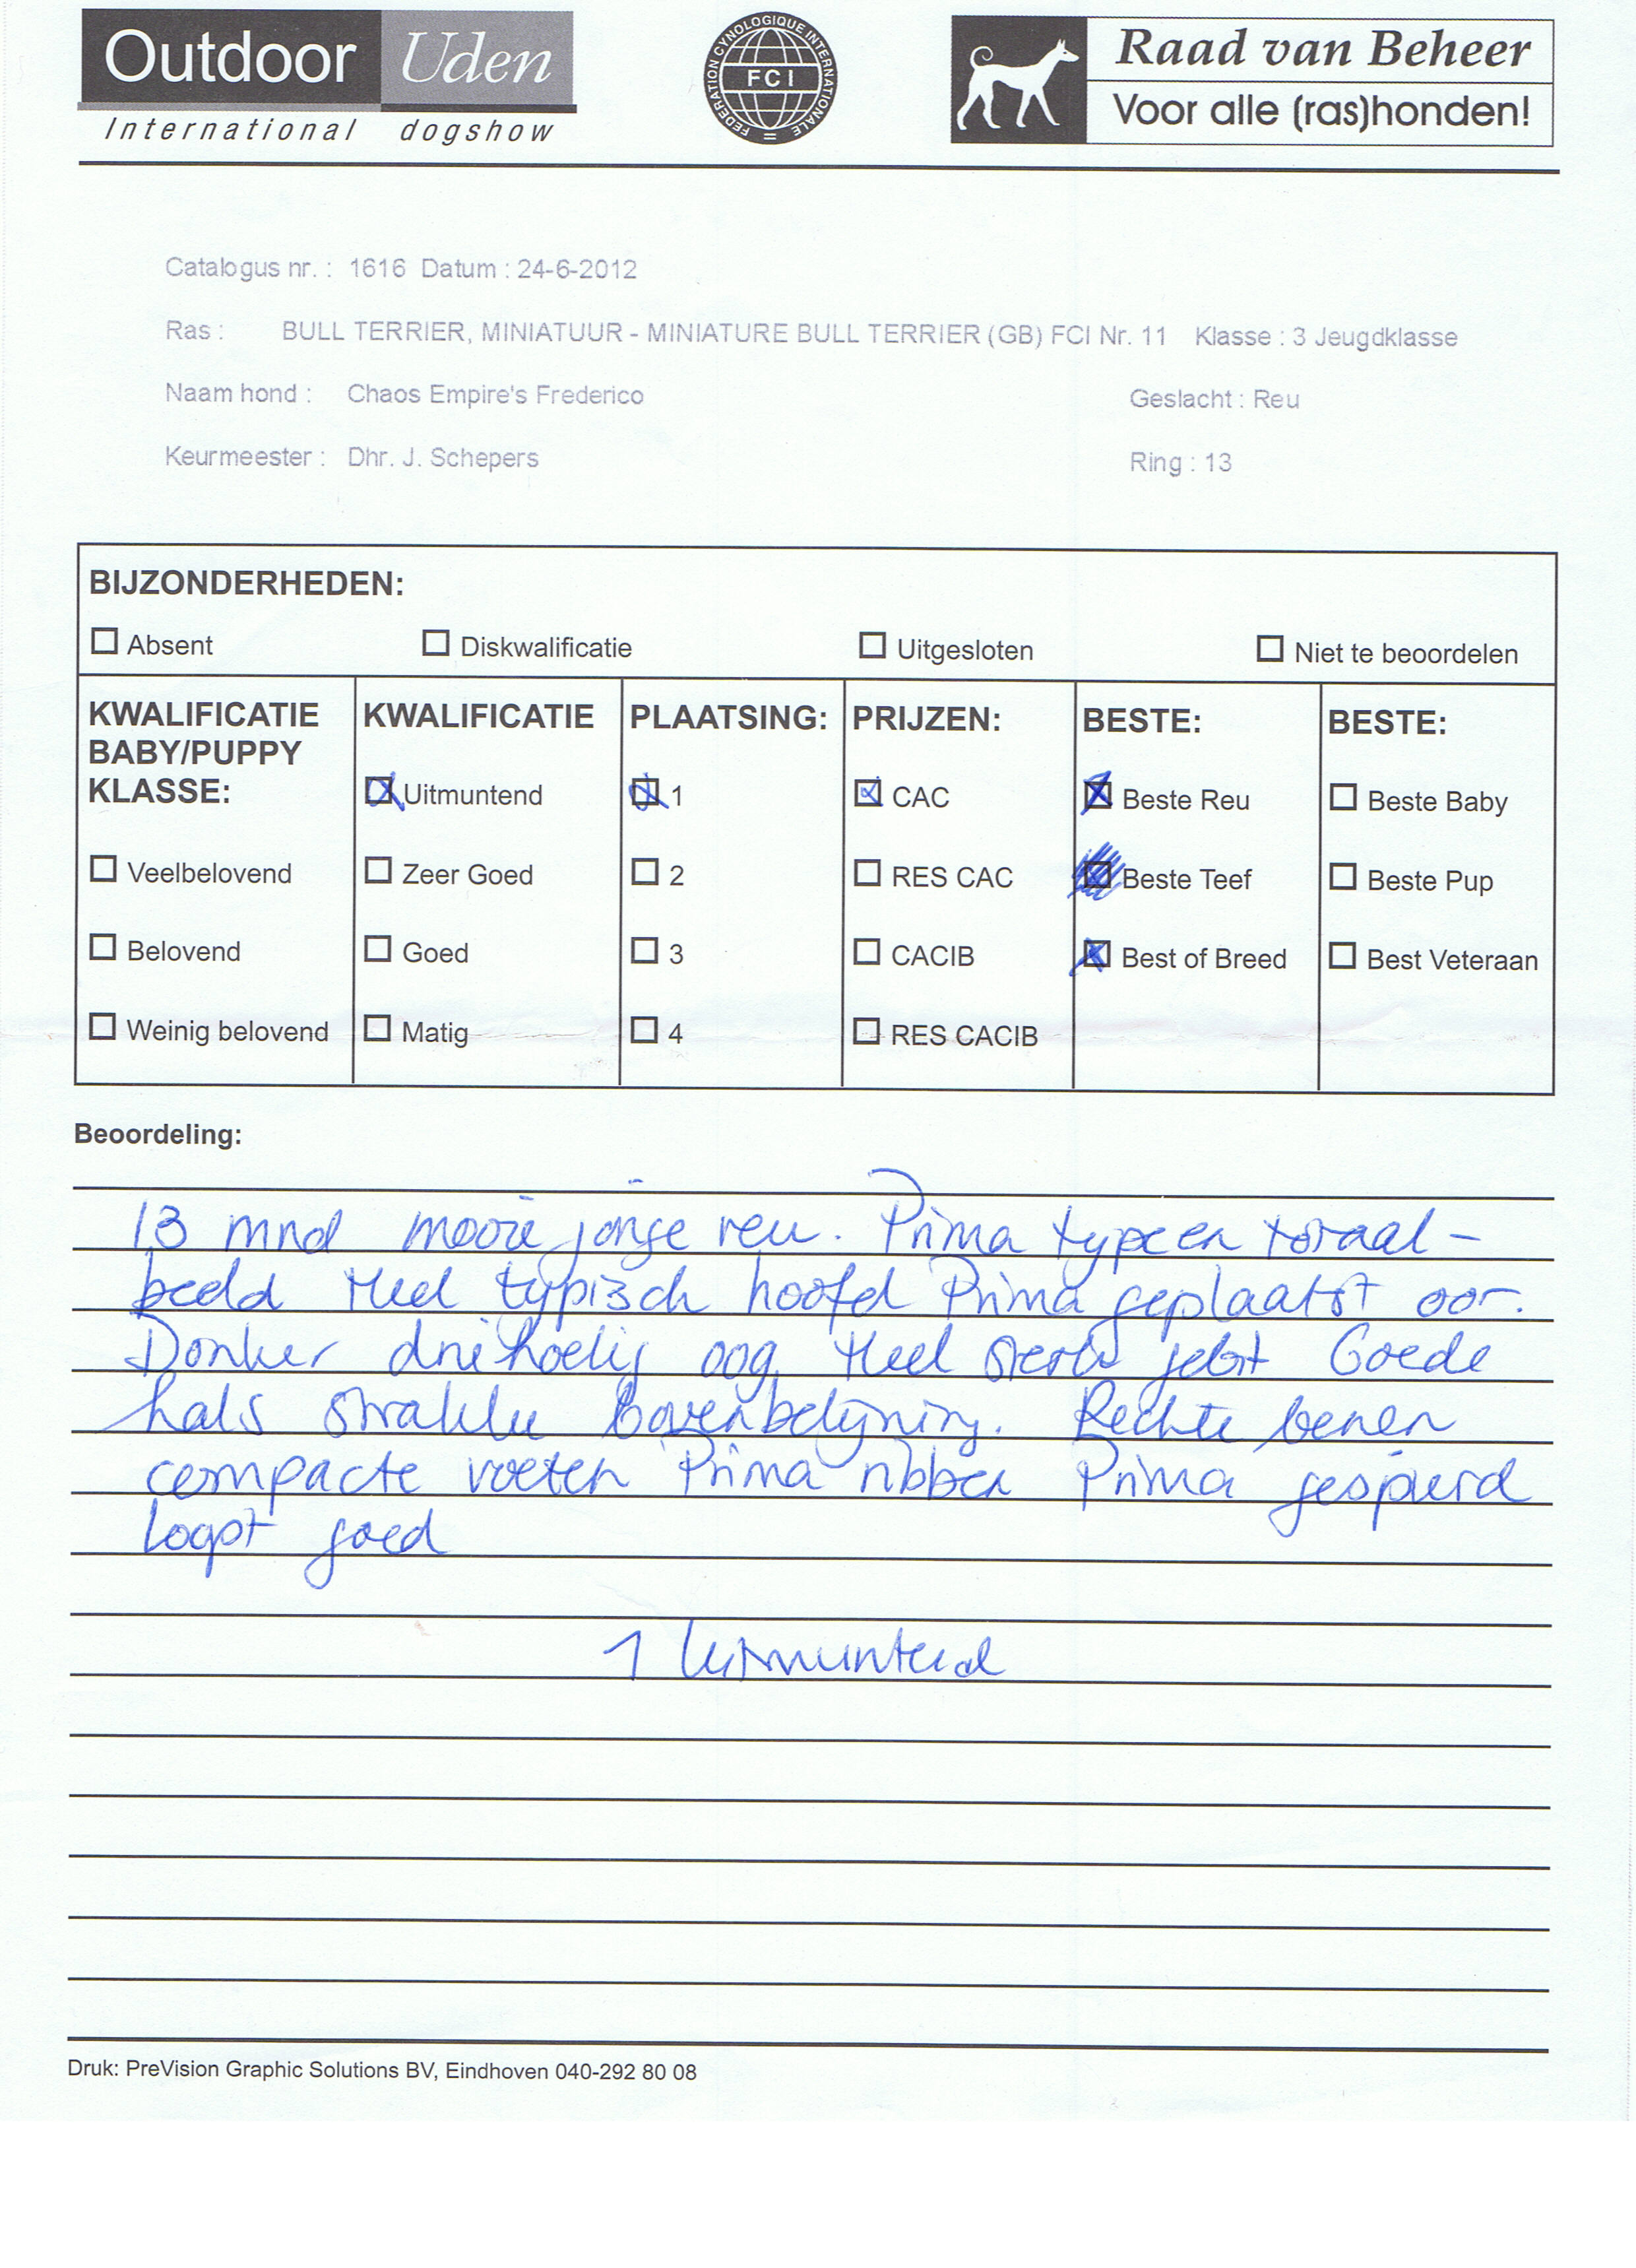 Outdoor Uden
International dogshow
FEDERATION CYNOLOGIQUE INTERNATIONALE
FCI
Raad van Beheer
Voor alle (ras)honden!
Catalogus nr. : 1616 Datum : 24-6-2012
Ras : BULL TERRIER, MINIATUUR - MINIATURE BULL TERRIER (GB) FCI Nr. 11 Klasse : 3 Jeugdklasse
Naam hond : Chaos Empire's Frederico Geslacht : Reu
Keurmeester : Dhr. J. Schepers Ring : 13
BIJZONDERHEDEN:
Absent Diskwalificatie Uitgesloten Niet te beoordelen
KWALIFICATIE
BABY/PUPPY
KLASSE:
Veelbelovend
Belovend
Weinig belovend
KWALIFICATIE
Uitmuntend
Zeer Goed
Goed
Matig
PLAATSING:
1
2
3
4
PRIJZEN:
CAC
RES CAC
CACIB
RES CACIB
BESTE:
Beste Reu
Beste Teef
Best of Breed
BESTE:
Beste Baby
Beste Pup
Best Veteraan
Beoordeling:
13 mnd mooie jonge reu. Prima type en totaal-
beeld Heel typisch hoofd Prima geplaatst oor.
Donker driehoekig oog Heel sterk gebit Goede
hals strakke bovenbelijning. Rechte benen
compacte voeten Prima ribben Prima gespierd
loopt goed
1 Uitmuntend
Druk: PreVision Graphic Solutions BV, Eindhoven 040-292 80 08